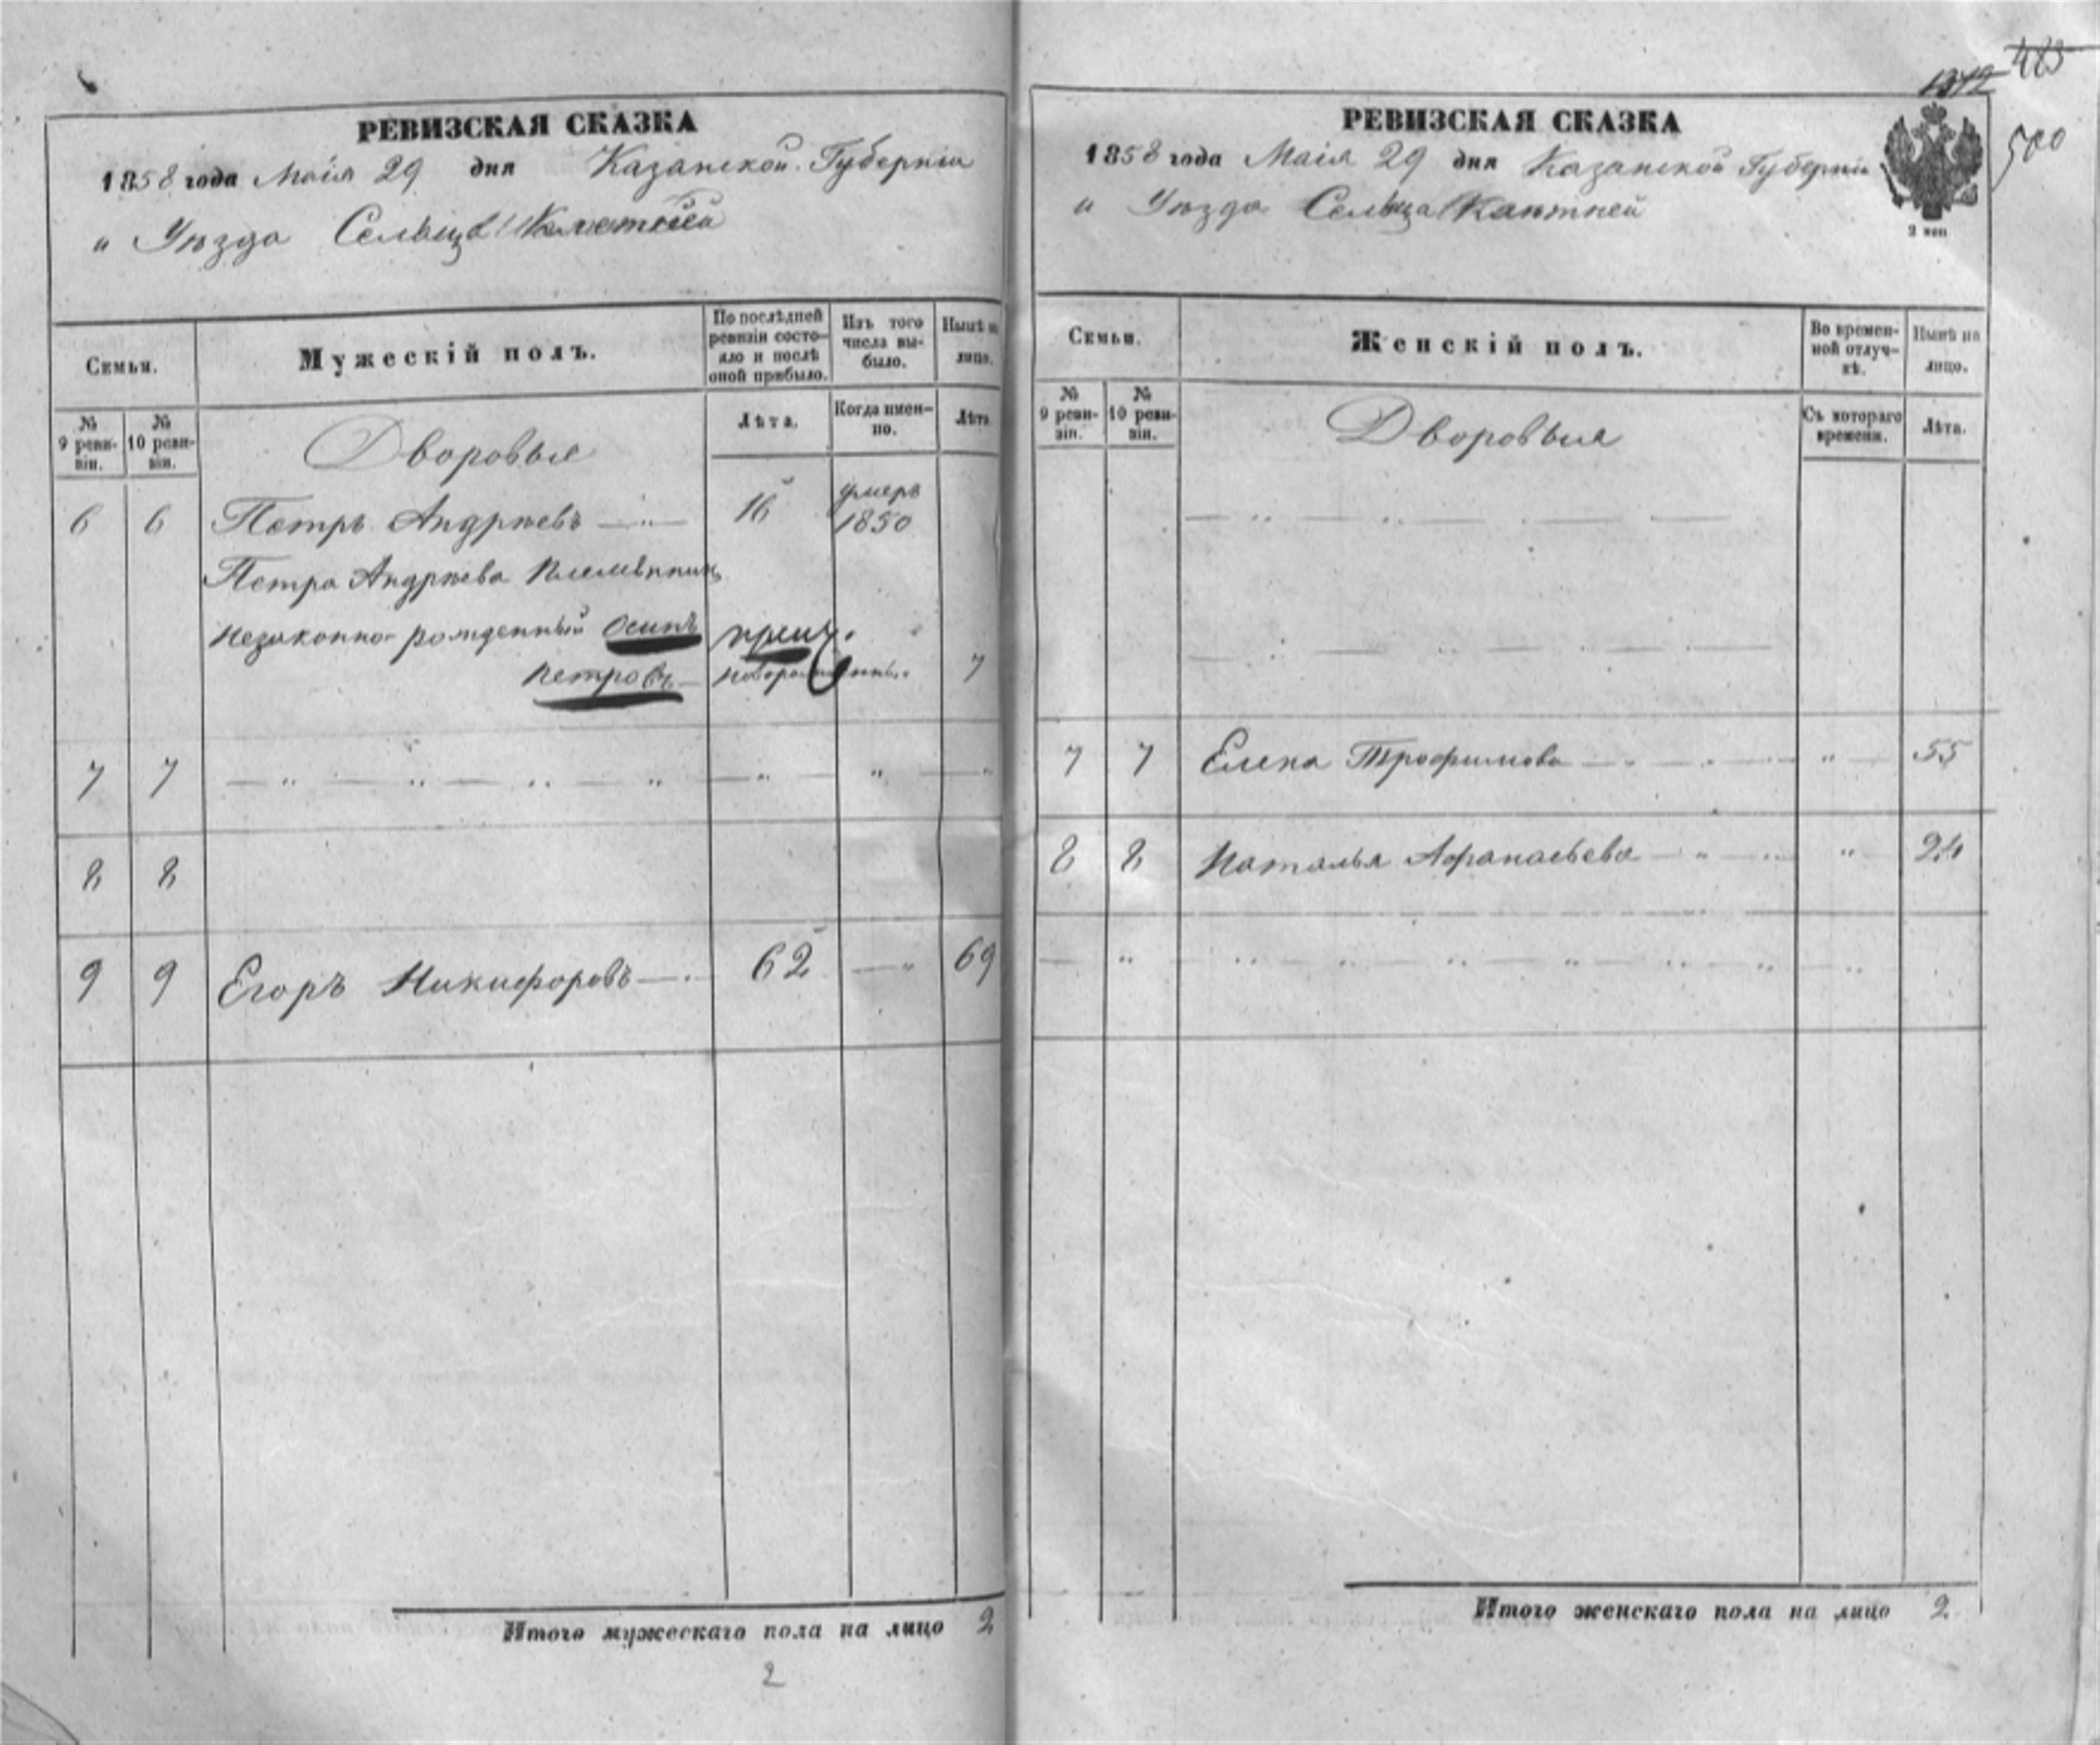 РЕВИЗСКАЯ СКАЗКА
1858 года Маія 29 дня Казанской Губерніи
" Уѣзда Сельца
Семьи.
Мужескій полъ.
По послѣдней ревизіи состояло и послѣ оной прибыло.
Изъ того числа выбыло.
Нынѣ на лицо.
№ 9 ревизіи.
№ 10 ревизіи.
Дворовые
Лѣта.
Когда именно.
Лѣта.
6 6 Петръ Андрѣевъ 16 умеръ 1850
Петра Андрѣева племянникъ
незаконно-рожденный Осипъ
Петровъ 7
7 7
8 8
9 9 Егоръ Никифоровъ 62 69
Итого мужескаго пола на лицо 2
2
1342 483
500
РЕВИЗСКАЯ СКАЗКА
1858 года Маія 29 дня Казанской Губерніи
" Уѣзда Сельца
Семьи.
Женскій полъ.
Во временной отлучкѣ.
Нынѣ на лицо.
№ 9 ревизіи.
№ 10 ревизіи.
Дворовыя
Съ котораго времени.
Лѣта.
7 7 Елена Трофимова " 55
8 8 Наталья Афанасьева " 24
Итого женскаго пола на лицо 2